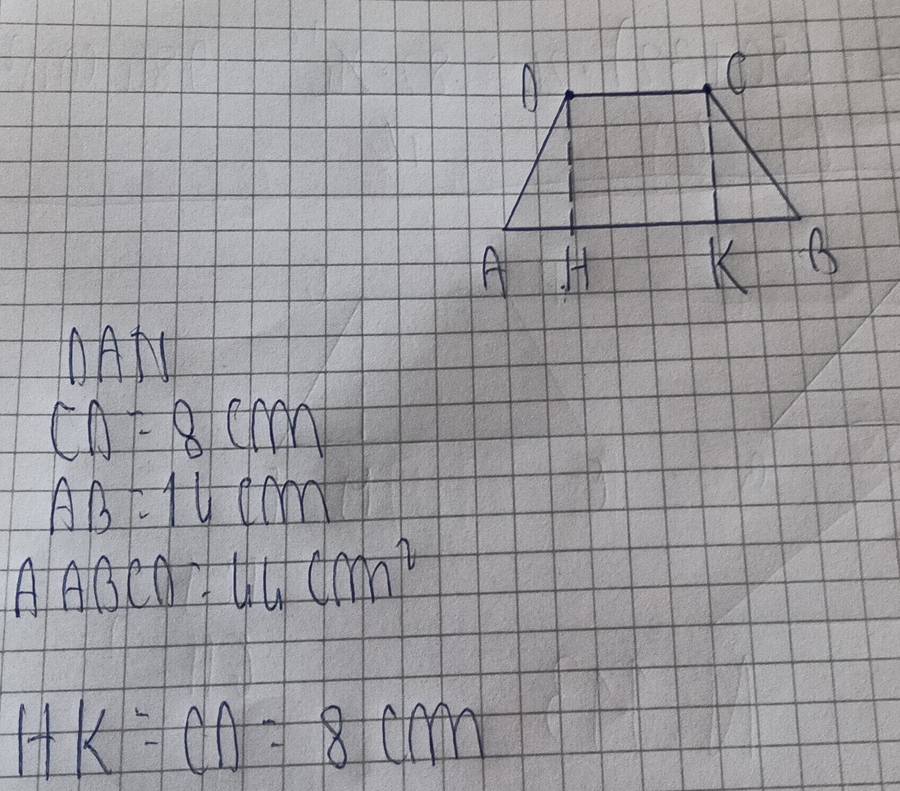 D C
A H K B
DAN
CD = 8 cm
AB = 14 cm
A ABCD = 44 cm²
HK = CD = 8 cm